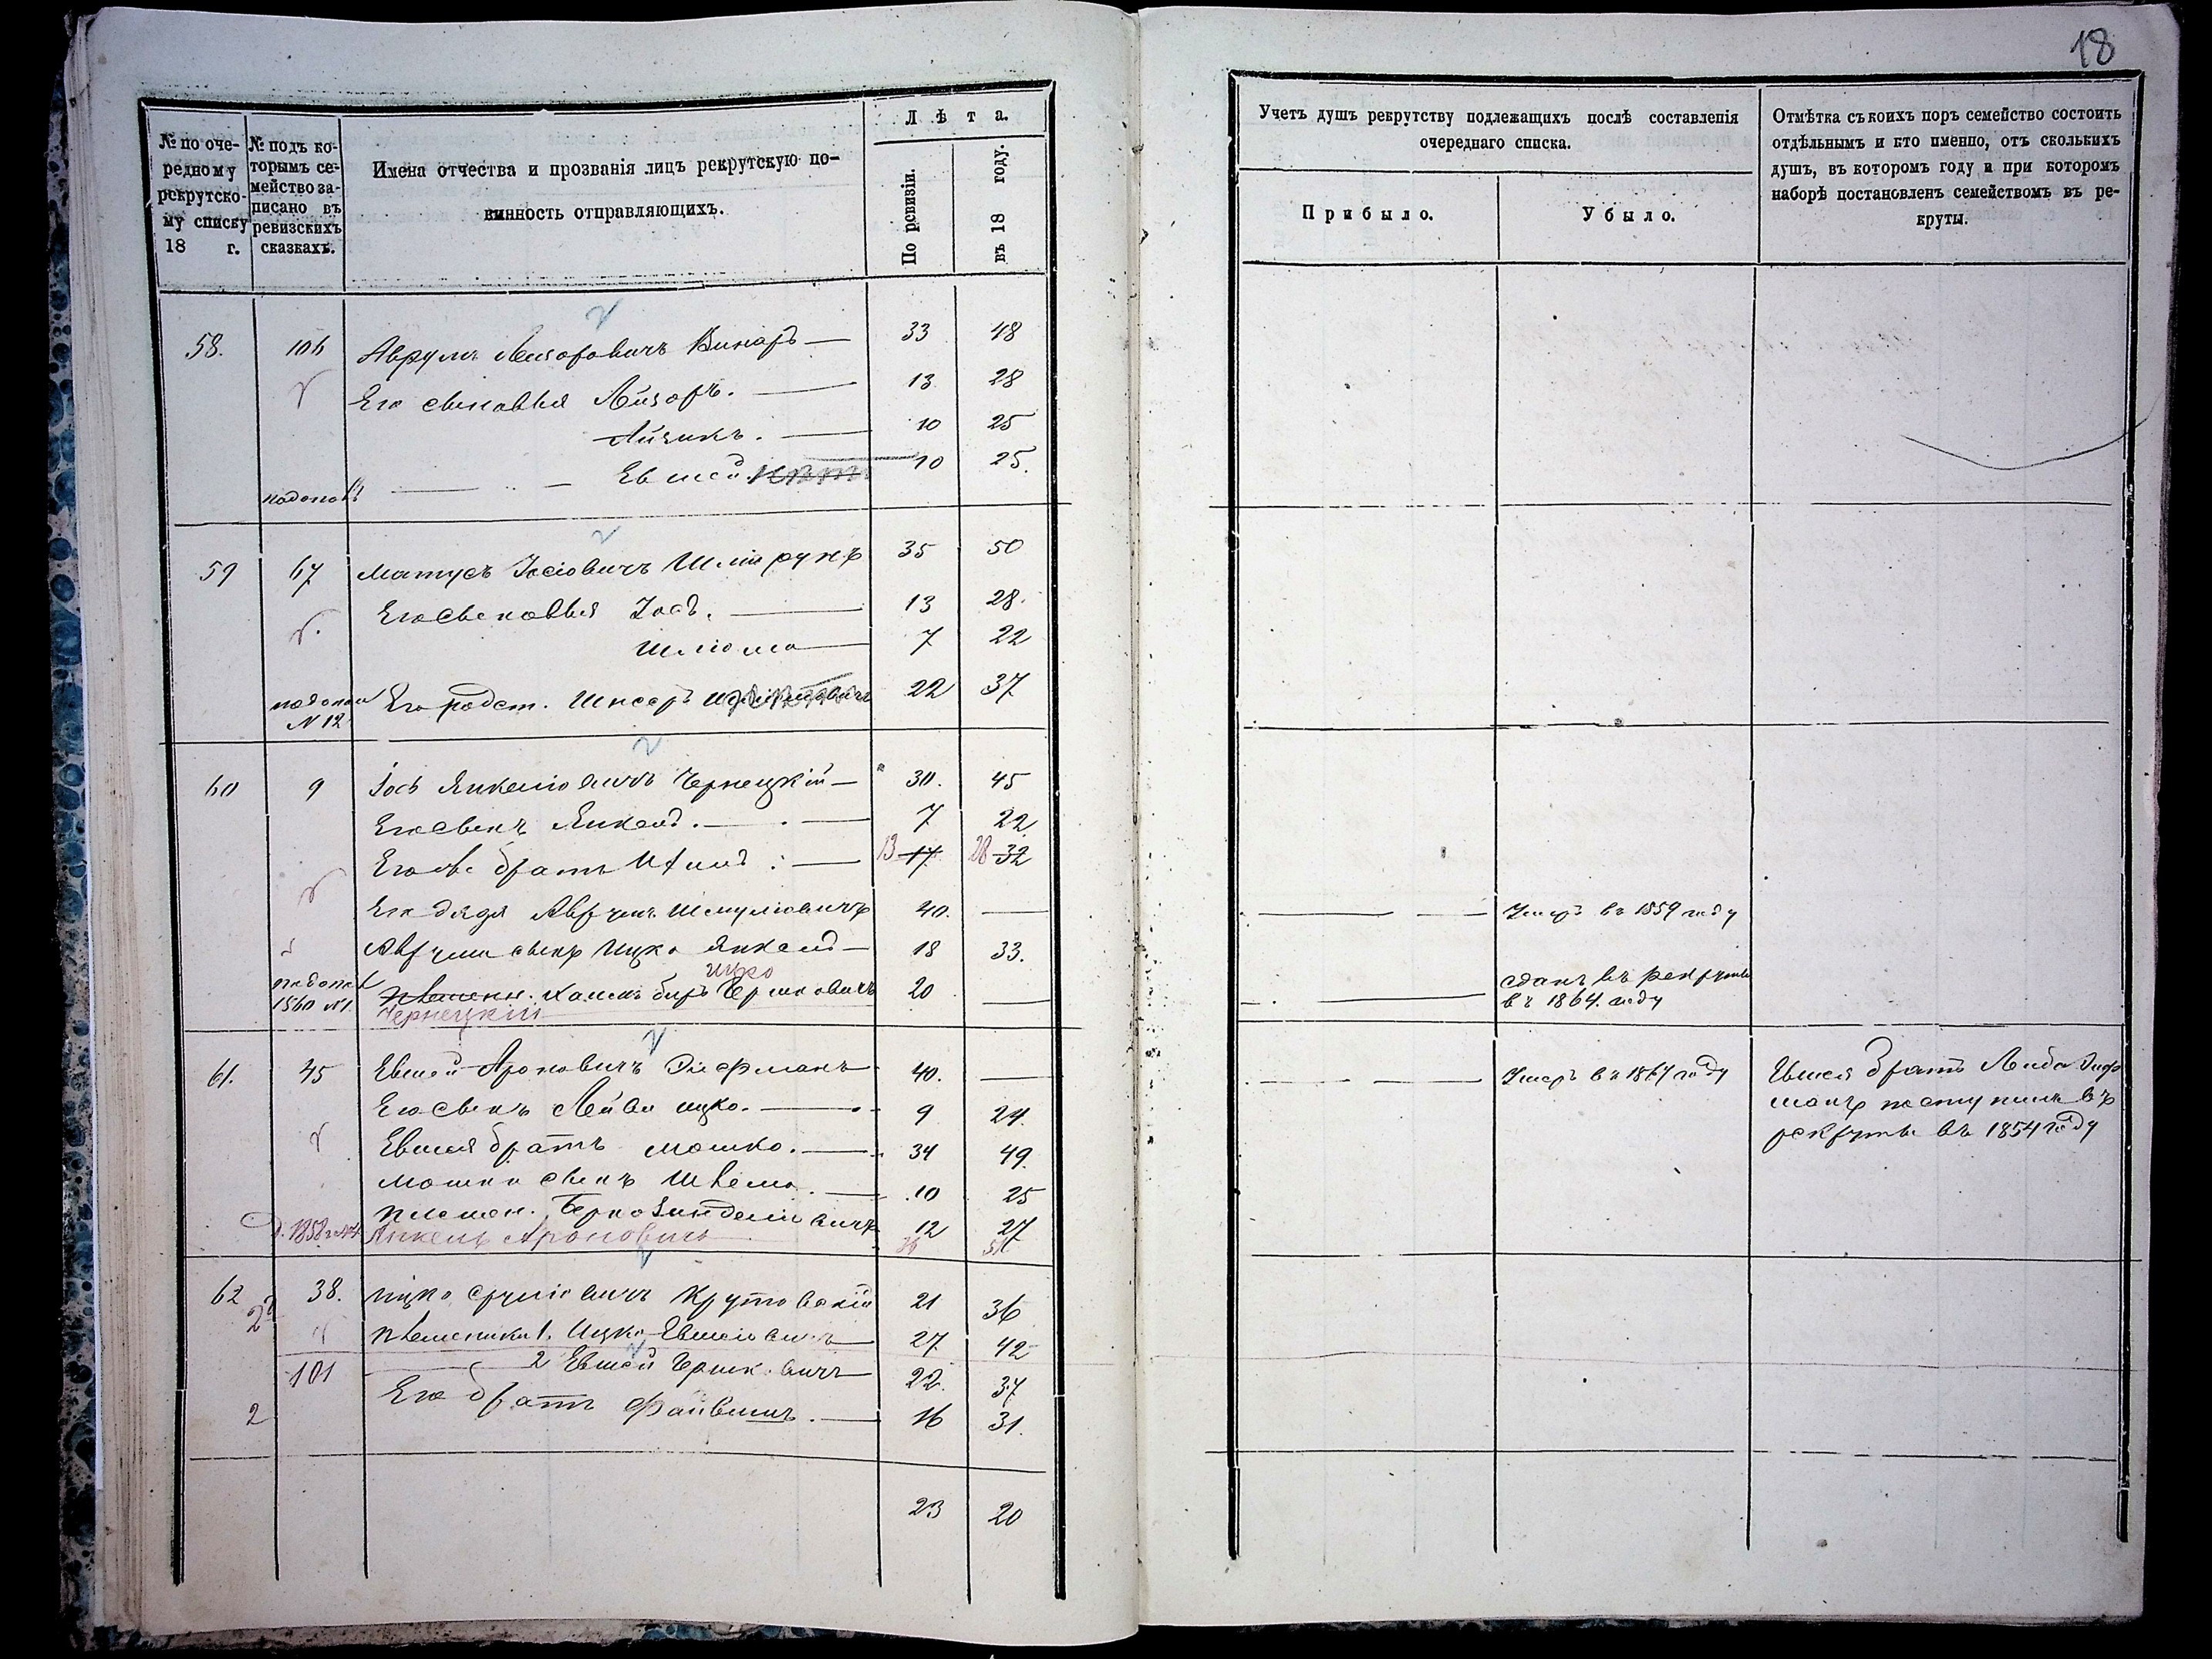 18
№ по оче-
редному
рекрутско-
му списку
18 г.
№ подъ ко-
торымъ се-
мейство за-
писано въ
ревизскихъ
сказкахъ.
Имена отчества и прозванія лицъ рекрутскую по-
винность отправляющихъ.
Л ѣ т а.
По ревизіи.
въ 18 году.
Учетъ душъ рекрутству подлежащихъ послѣ составленія
очереднаго списка.
Прибыло.
Убыло.
Отмѣтка съ коихъ поръ семейство состоитъ
отдѣльнымъ и кто именно, отъ сколькихъ
душъ, въ которомъ году и при которомъ
наборѣ постановленъ семействомъ въ ре-
круты.
58. 106 Аврумъ Лейзоровичъ Винаръ 33 48
Его сыновья Лейзоръ. 13 28
Айзикъ. 10 25
Евсей 10 25.
59 67 Матусъ Іосіовичъ 35 50
Его сыновья Іось. 13 28.
Шліома 7 22
№ 12 Его родст. 22 37
60 9 Іось Янкеліовичъ Чернецкій 30. 45
Его сынъ Янкель. 7 22.
Его братъ 13 17 28 32
Его дядя Аврумъ Шмуліовичъ 40. Умеръ въ 1859 году
Аврума сынъ Ицко Янкель 18 33.
Ицко
1860 №1. 20 сданъ въ рекруты
Чернецкій въ 1864. году
61. 45 Евсей Ароновичъ 40. Умеръ въ 1867 году Евсея братъ Лейба
Его сынъ Лейба Ицко. 9 24. поступилъ въ
Евсея братъ Мошко. 34 49. рекруты въ 1854 году
Мошки сынъ 10 25
племен. Берко Зинделіовичъ 12 27
1858 Янкель Ароновичъ 36 51
62 38. Ицко Сруліовичъ Крутовскій 21 36
2
племенники 1. Ицко Евсеіовичъ 27 42
101 2 Евсей Берковичъ 22. 37
2 Его братъ Файвишъ. 16 31.
23 20